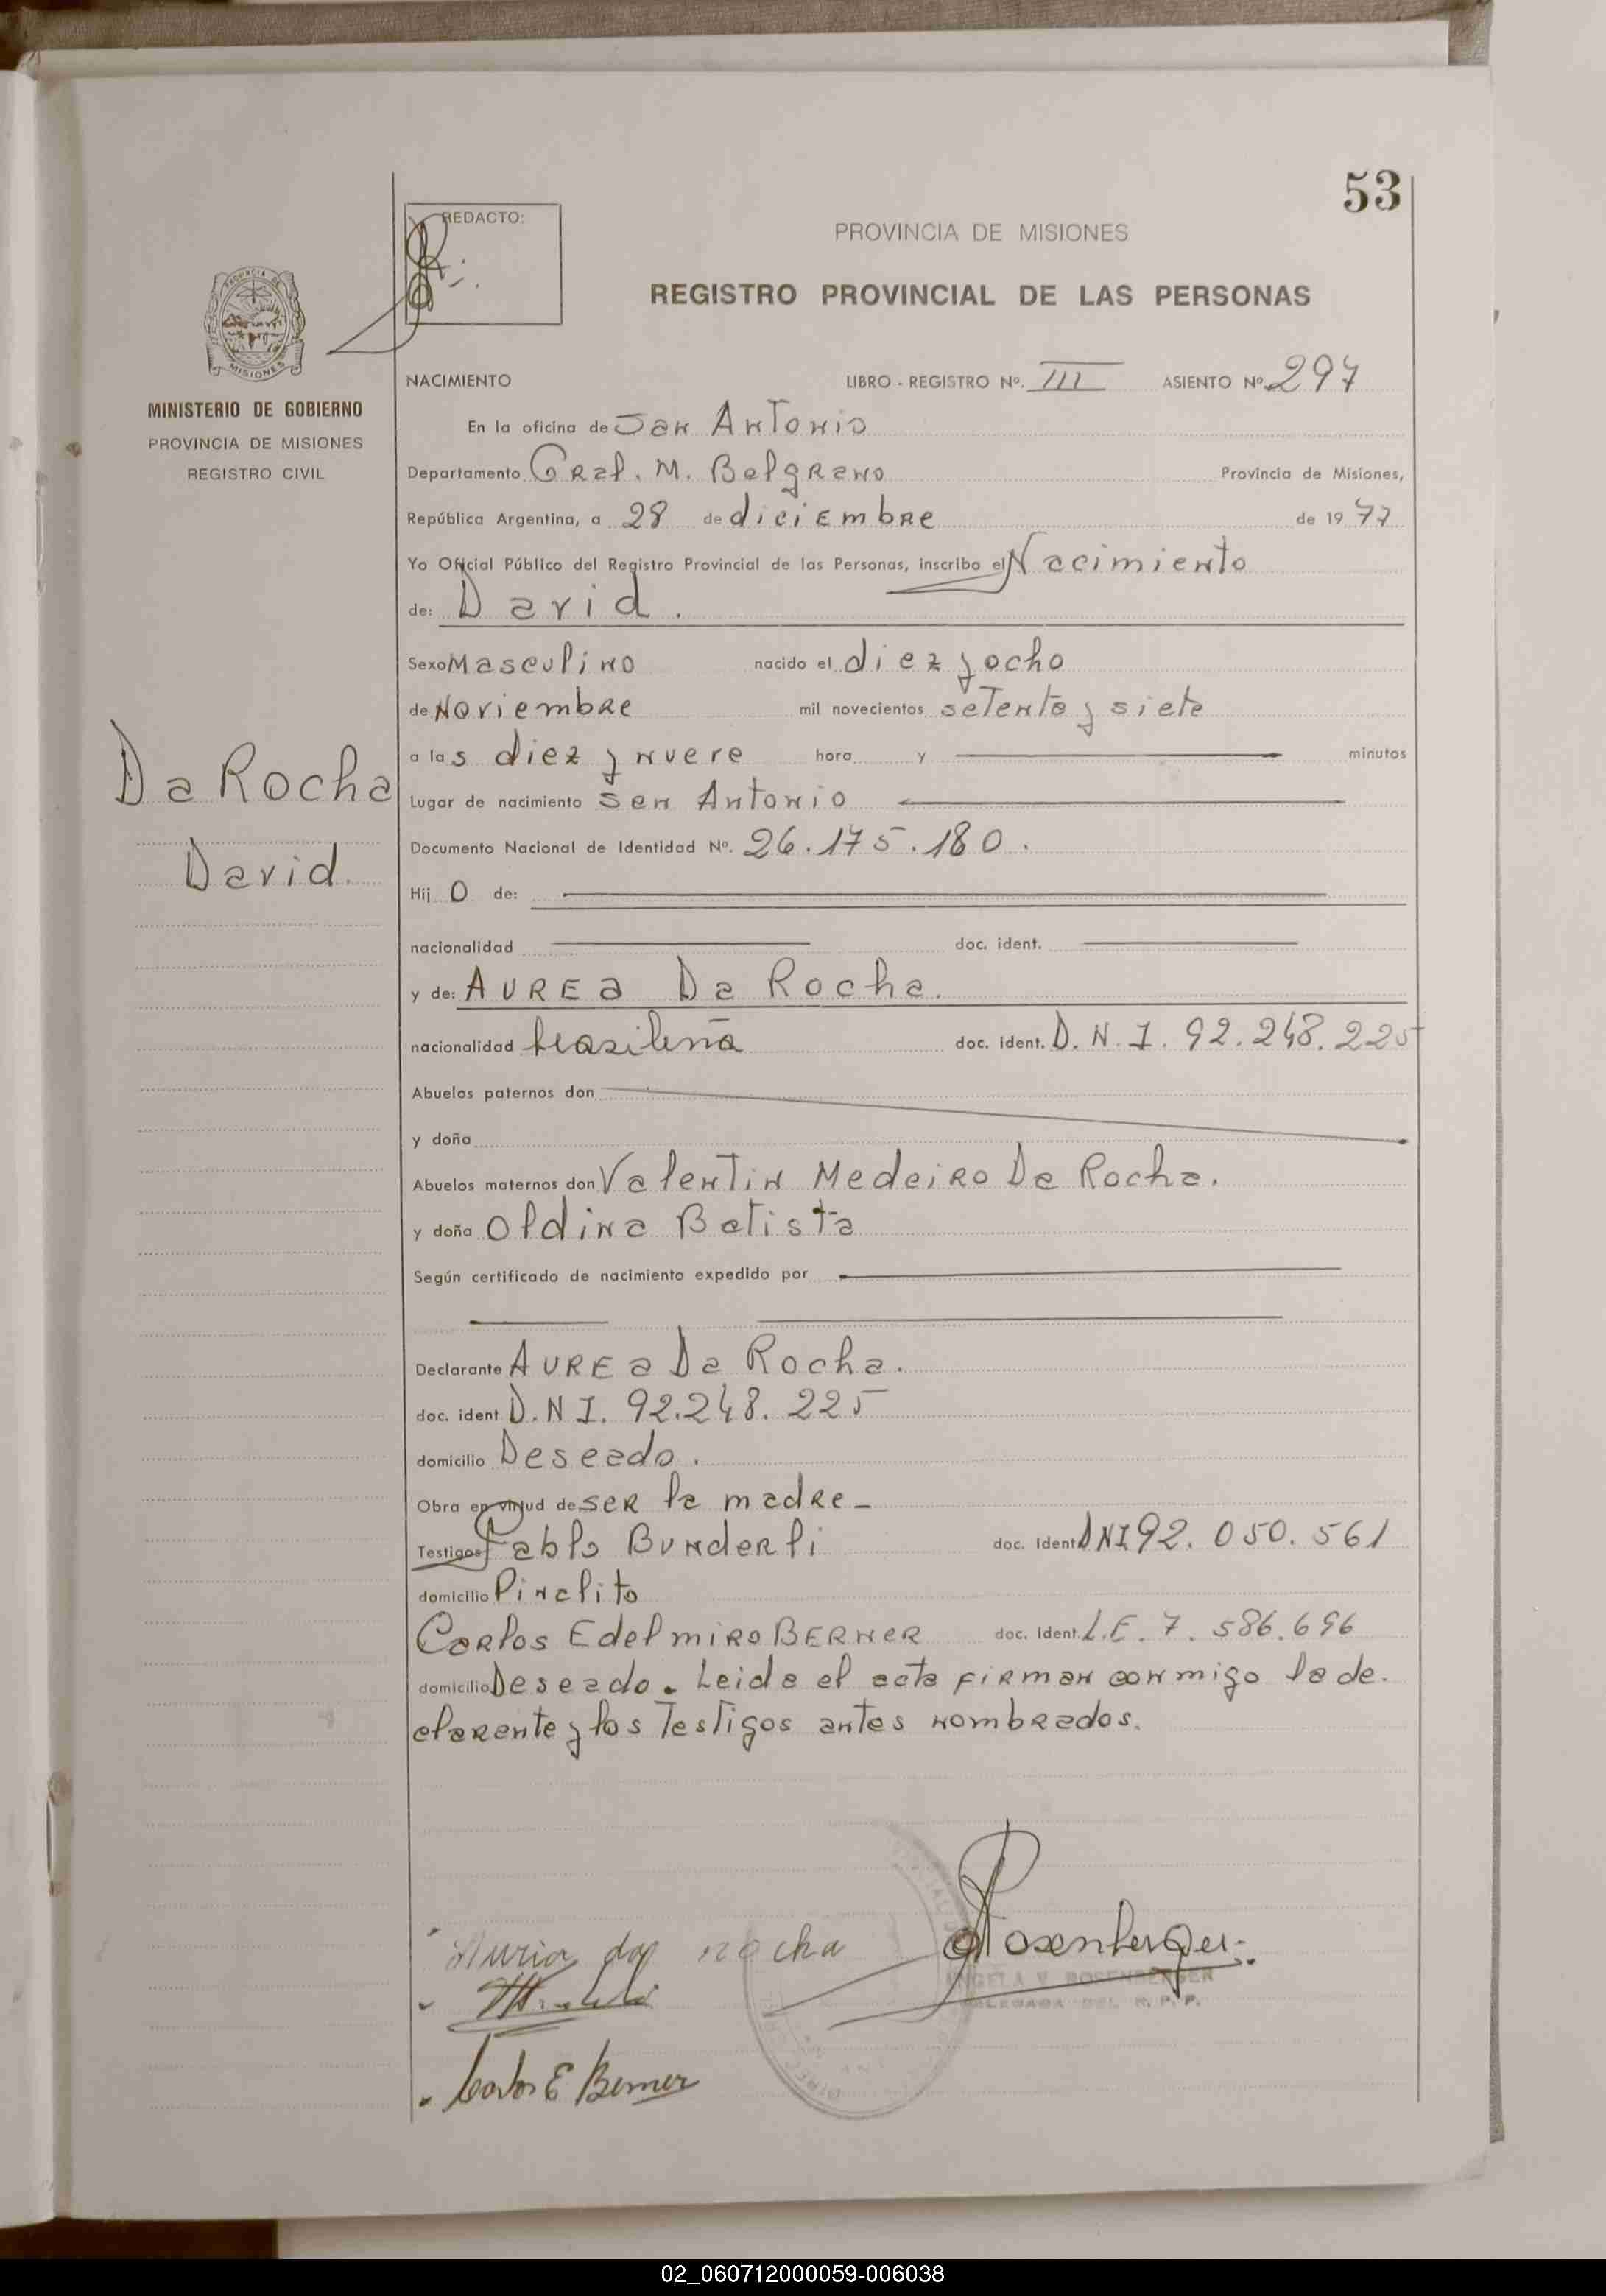 53
REDACTO:
PROVINCIA DE MISIONES
REGISTRO PROVINCIAL DE LAS PERSONAS
MISIONES
MINISTERIO DE GOBIERNO
PROVINCIA DE MISIONES
REGISTRO CIVIL
Da Rocha
David.
NACIMIENTO LIBRO - REGISTRO Nº. III ASIENTO Nº 297
En la oficina de San Antonio
Departamento Gral. M. Belgrano Provincia de Misiones,
República Argentina, a 28 de diciembre de 1977
Yo Oficial Público del Registro Provincial de las Personas, inscribo el Nacimiento
de: David.
Sexo Masculino nacido el diez y ocho
de Noviembre mil novecientos setenta y siete
a las diez y nueve hora y minutos
Lugar de nacimiento San Antonio
Documento Nacional de Identidad Nº. 26.175.180.
Hij o de:
nacionalidad doc. ident.
y de: Aurea Da Rocha.
nacionalidad brasileña doc. ident. D.N.I. 92.248.225
Abuelos paternos don
y doña
Abuelos maternos don Valentin Medeiro Da Rocha.
y doña Oldina Batista
Según certificado de nacimiento expedido por
Declarante Aurea Da Rocha.
doc. ident D.N.I. 92.248.225
domicilio Deseado.
Obra en virtud de ser la madre-
Testigos Pablo Bunderli doc. Ident DNI 92.050.561
domicilio Pinalito
Carlos Edelmiro Berner doc. Ident. L.E. 7.586.696
domicilio Deseado. Leida el acta firman conmigo la de.
clarante y los Testigos antes nombrados.
da rocha
Rosenberger
ANGELA V. ROSENBERGER
DELEGADA DEL R.P.P.
Carlos E Berner
02_060712000059-006038